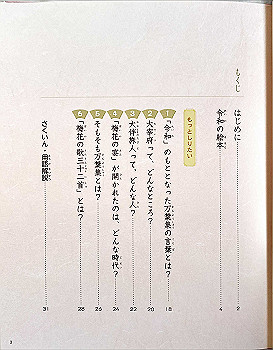 もくじ
はじめに 2
令和の絵本 4
もっとしりたい
1 「令和」のもととなった万葉集の言葉とは? 18
2 大宰府って、どんなところ? 20
3 大伴旅人って、どんな人? 22
4 「梅花の宴」が開かれたのは、どんな時代? 24
5 そもそも万葉集とは? 26
6 「梅花の歌三十二首」とは? 28
さくいん・用語解説 31
3